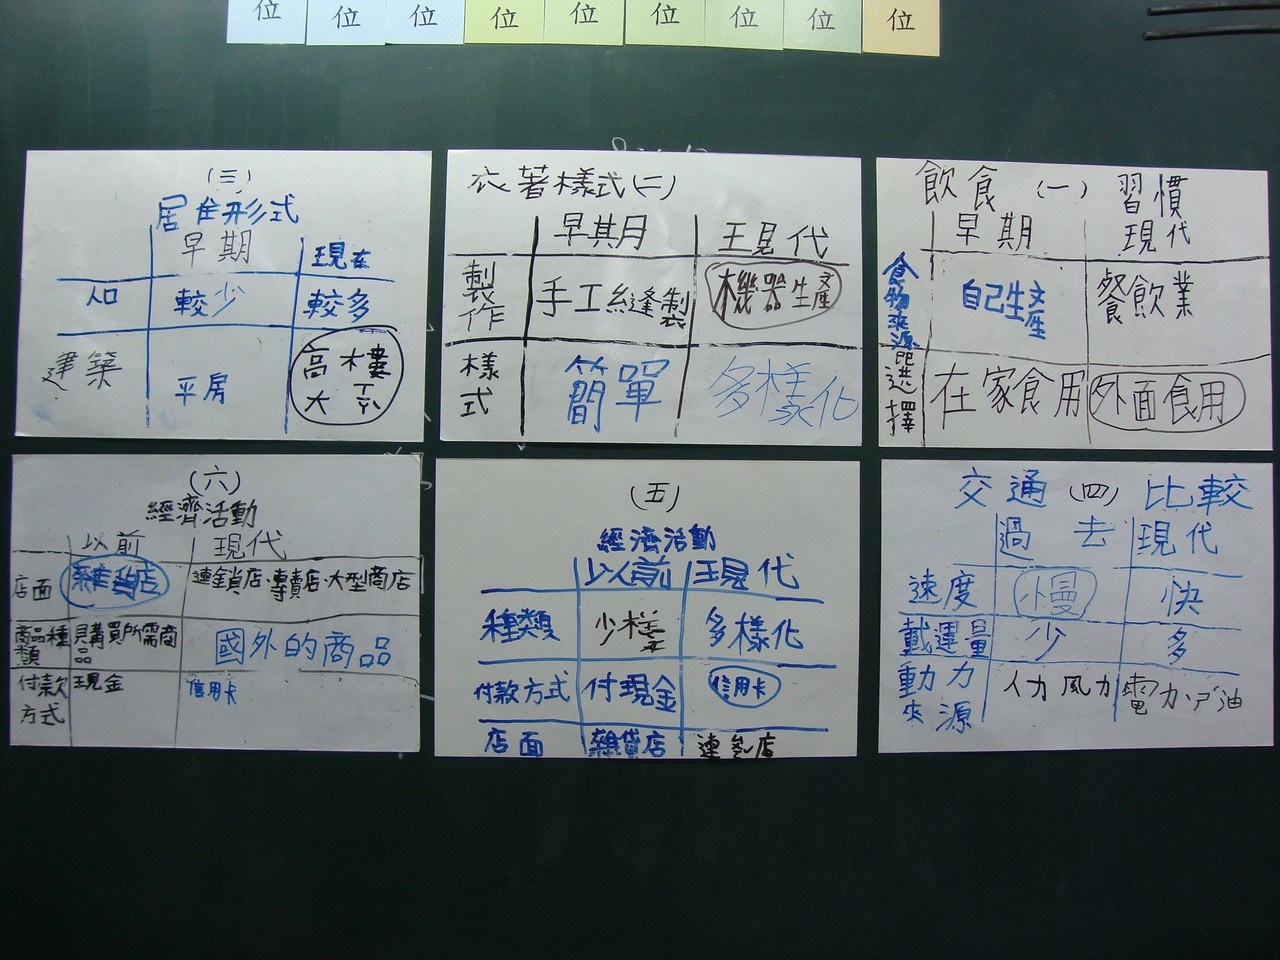 位 位 位 位 位 位 位 位 位
(三)
居住形式
早期 現在
人口 較少 較多
建築 平房 高樓
大
衣著樣式(二)
早期 現代
製作 手工縫製 機器生產
樣式 簡單 多樣化
飲食(一)習慣
早期 現代
食物來源 自己生產 餐飲業
選擇 在家食用 外面食用
(六)
經濟活動
以前 現代
店面 雜貨店 連鎖店、專賣店、大型商店
商品種類 購買所需商品 國外的商品
付款方式 現金 信用卡
(五)
經濟活動
以前 現代
種類 少樣 多樣化
付款方式 付現金 信用卡
店面 雜貨店 連 店
交通(四)比較
過去 現代
速度 慢 快
載運量 少 多
動力來源 人力 風力 電力 油